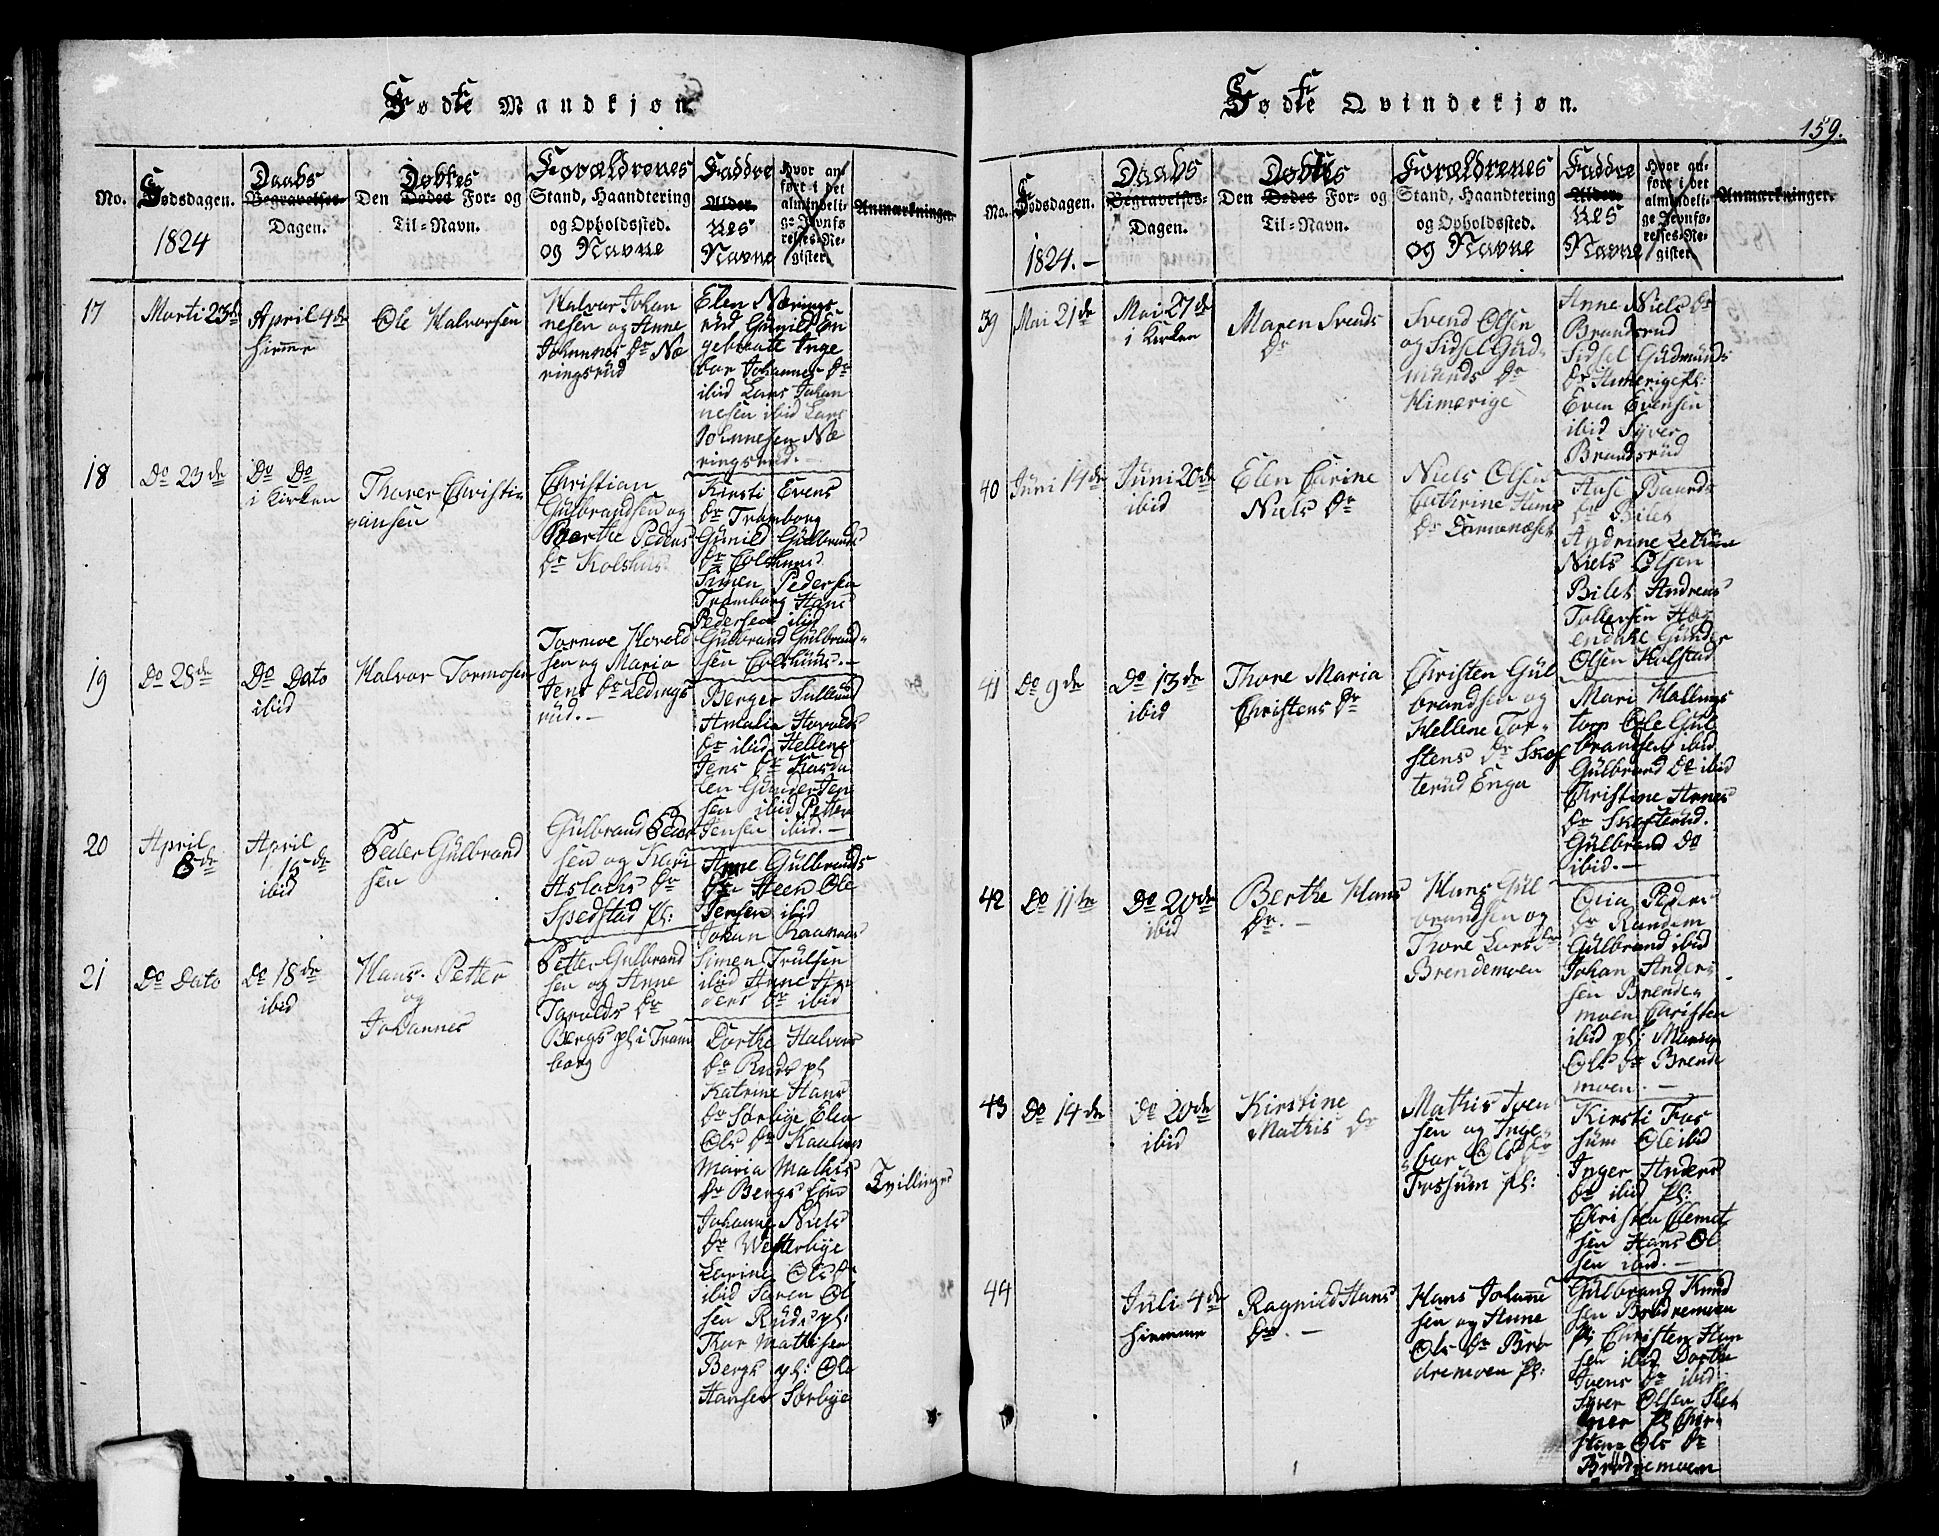 Fødte Mandkjøn.
No.
Fødsdagen.
1824
Daabs
Begravelses-
Dagen.
Døbtes
Den Dødes For- og
Til-Navn.
Forældrenes
Stand, Haandtering
og Opholdssted.
og Navne
Faddre
Alder
nes
Navne
Hvor an-
ført i det
almindeli-
ge Jevnfø-
relses-Re-
gister
Anmærkninger.
17
Marti 23de
April 4de
hiemme
Ole Halvorsen
Halvor Johan
nesen og Anne
Johannes Dr Næ
ringsrud
Elen Nærings
rud Gunild
gebraate Inge
bor Johannes Dr
ibid Lars Johan
nesen ibid Lars
Johnnesen Næ
ringsrud.
18
Do 23de
Do Do
i Kirken
Thorer Christi
ansen
Christian
Gulbrandsen og
Berthe Peders
Dr Kolshus
Kirsti Evens
Dr Tramborg
Gunild Gulbrands
Dr Colshuus
Simen Pedersen
Tramborg Hans
Pedersen ibid
Gulbrand Gulbrand-
sen Colshuus.
19
Do 28de
Do Dato
ibid
Halvor Tormosen
Tormoe Hovold
sen og Maria
Jens Dr Ledings
rud.
Berger
Amalia Hovolds
Dr ibid Hellene
Jens Dr
len Gunder Jen
sen ibid Petter
Jensen ibid.
20
April
8de
April
15de
ibid
Peder Gulbrand
sen
Gulbrand Peder
sen og Kari
Aslachs Dr
Spedstad pl:
Anne Gulbrands
Dr Heen Ole
Jensen ibid
Johan
Simen Trulsen
ibid Anne An
ders Dr ibid
21
Do Dato
Do 18de
ibid
Hans Petter
og
Johannes
Petter Gulbrand
sen og Anne
Tarolds Dr
Bergs pl i Tram
borg
Dorthe Halvors
Dr Ruds pl
Katrine Hans
Dr Sørbye Elen
Ols Dr
Maria Mathis
Dr Bergs
Johanne Niels
Dr Westerbye
Karine Ols Dr
ibid Søren Ol
sen Ruds pl:
Thor Mathisen
Bergs pl: Ole
Hansen Sørbye
Tvillinger
Fødte Qvindekjøn.
159.
No.
Fødsdagen.
1824.
Daabs
Begravelses-
Dagen.
Døbtes
Den Dødes For- og
Til-Navn.
Forældrenes
Stand, Haandtering
og Opholdssted.
og Navne
Faddre
Alder
nes
Navne
Hvor an-
ført i det
almindeli-
ge Jevnfø-
relses-Re-
gister
Anmærkninger.
39
Mai 21de
Mai 27de
i Kirken
Maren Svends
Dr
Svend Olsen
og Sidsel Gud-
munds Dr
Himerige
Anne Niels Dr
Brandsrud
Sidsel Gudmunds
Dr Himerige pl:
Even Evensen
ibid Syver
Brandsrud
40
Juni 14de
Juni 20de
ibid
Elen Carine
Niels Dr
Niels Olsen
Cathrine Hans
Dr
Anse Baards
Dr Bilet
Andrine
Niels Olsen
Bilet Andreas
Tollersen
Gunder
Olsen Kolstad
41
Do 9de
Do 13de
ibid
Thore Maria
Christens Dr
Christen Gul
brandsen og
Hellene Tor-
stens Dr Skof
terud Enga
Mari Hallings
torp Ole Gul
brandsen ibid
Gulbrand Do ibid
Christine Annes
Dr Skofterud.
Gulbrand Do
ibid.
42
Do 11te
Do 20de
ibid
Berthe Hans
Dr.
Hans Gul
brandsen og
Thore Lars Dr
Brendemoen
Peders
Dr Randem
Gulbrand ibid
Johan Anders
sen Brende-
moen Christen
ibid pl:
Ols Dr Brende
moen.
43
Do 14de
Do 20de
ibid
Kirstine
Mathis Dr
Mathis Iven
sen og Inge
bor Ols Dr
Fossum pl:
Kirsti Fos
sum Ole ibid
Inger Anders
Dr ibid pl:
Christen Clemet
sen Hans Ol
sen ibid.
44
Juli 4de
hiemme
Ragnild Hans
Dr.
Hans Johanne
sen og Anne
Ols Dr Brø
dremoen pl:
Gulbrand Knud
sen Brødremoen
pl: Christen Han
sen ibid Dorthe
Ivens Dr ibid:
Syver Olsen
pl Chir-
stine Ols Dr
Brødremoen